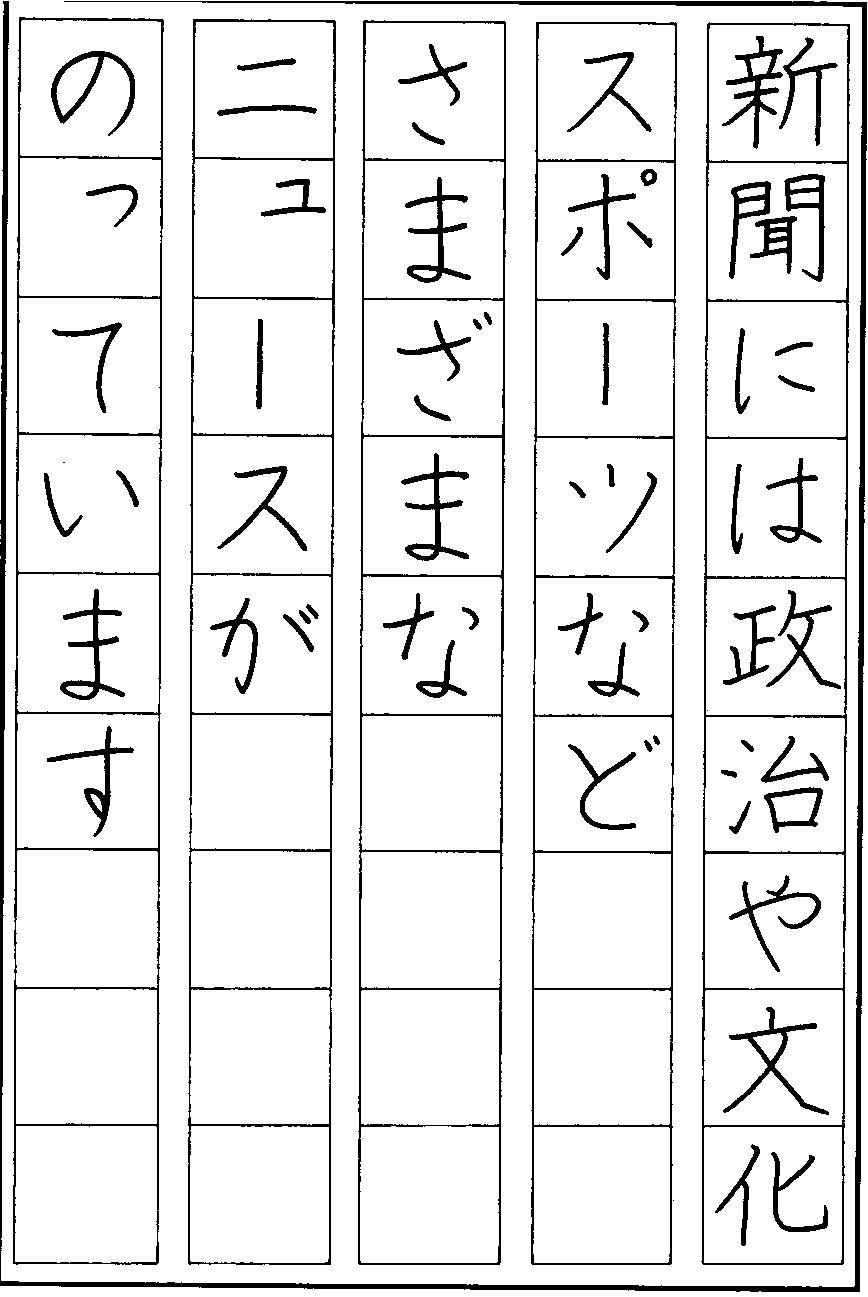 新聞には政治や文化
スポーツなど
さまざまな
ニュースが
のっています